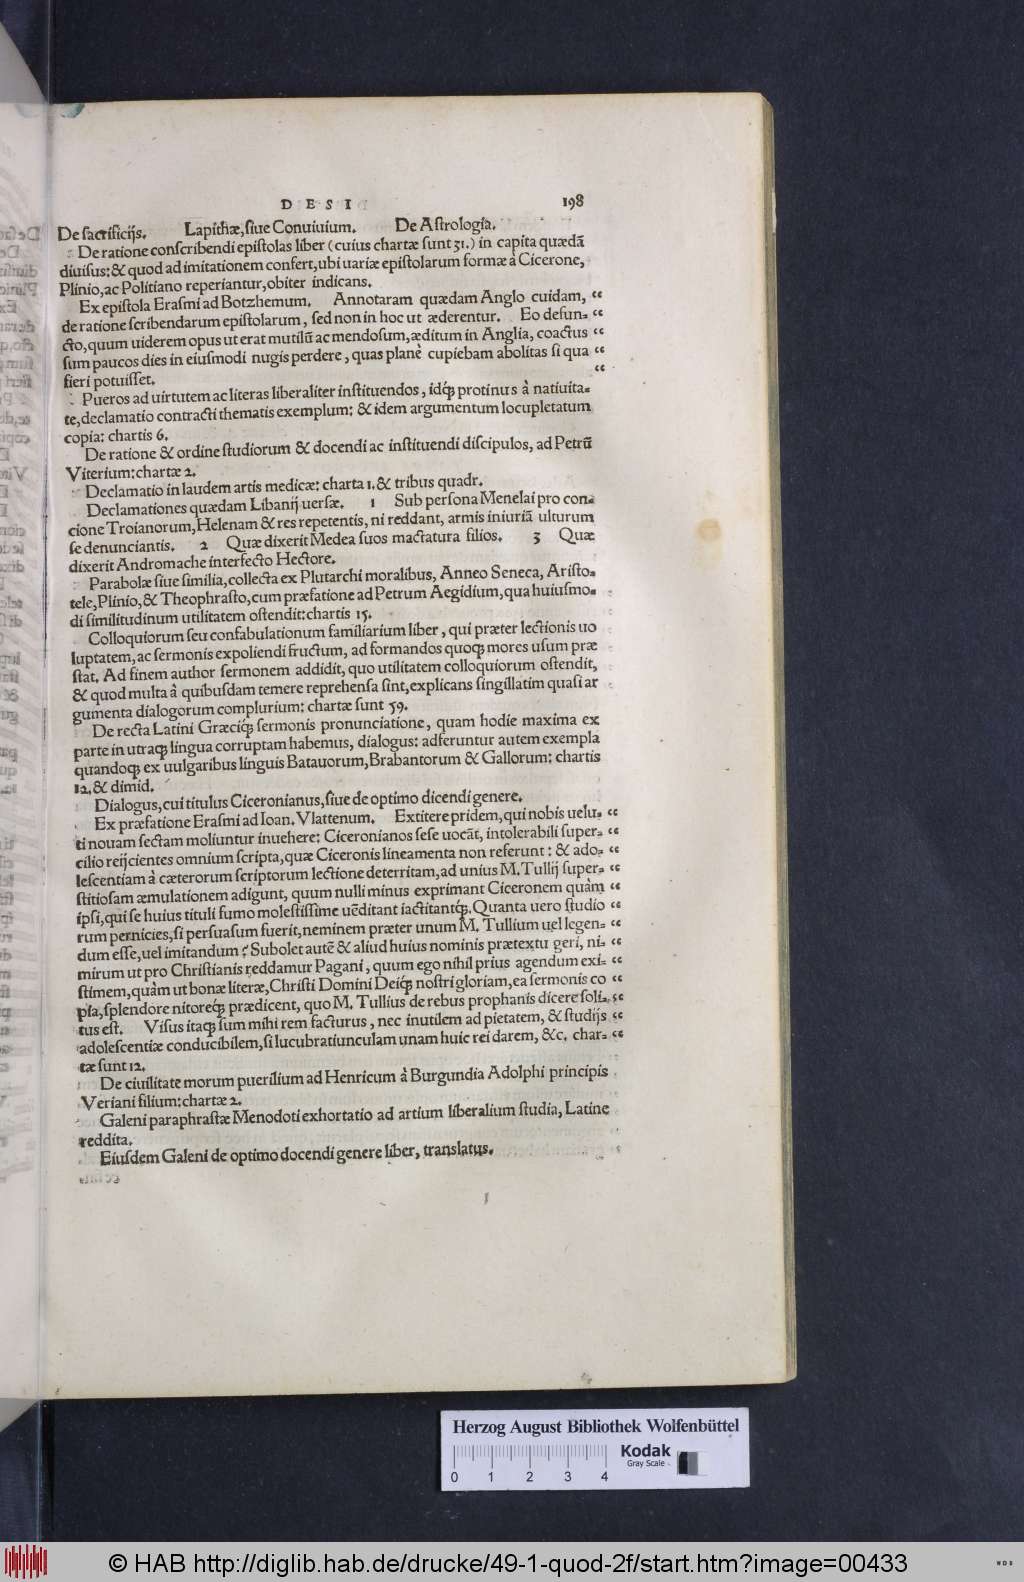 D E S I 198
De sacrificijs. Lapithæ, siue Conuiuium. De Astrologia.
De ratione conscribendi epistolas liber (cuius chartæ sunt 31.) in capita quædã
diuisus: & quod ad imitationem confert, ubi uariæ epistolarum formæ à Cicerone,
Plinio, ac Politiano reperiantur, obiter indicans.
Ex epistola Erasmi ad Botzhemum. Annotaram quædam Anglo cuidam, “
de ratione scribendarum epistolarum, sed non in hoc ut æderentur. Eo defun= “
cto, quum uiderem opus ut erat mutilũ ac mendosum, æditum in Anglia, coactus “
sum paucos dies in eiusmodi nugis perdere, quas planè cupiebam abolitas si qua “
fieri potuisset. “
Pueros ad uirtutem ac literas liberaliter instituendos, idq́; protinurs à natiuita=
te, declamatio contracti thematis exemplum: & idem argumentum locupletatum
copia: chartis 6.
De ratione & ordine studiorum & docendi ac instituendi discipulos, ad Petrũ
Viterium: chartæ 2.
Declamatio in laudem artis medicæ: charta 1. & tribus quadr.
Declamationes quædam Libanij uersæ. 1 Sub persona Menelai pro con=
cione Troianorum, Helenam & res repetentis, ni reddant, armis iniuriã ulturum
se denunciantis. 2 Quæ dixerit Medea suos mactatura filios. 3 Quæ
dixerit Andromache interfecto Hectore.
Parabolæ siue similia, collecta ex Plutarchi moralibus, Anneo Seneca, Aristo=
tele, Plinio, & Theophrasto, cum præfatione ad Petrum Aegidium, qua huiusmo=
di similitudinum utilitatem ostendit: chartis 15.
Colloquiorum seu confabulationum familiarium liber, qui præter lectionis uo
luptatem, ac sermonis expoliendi fructum, ad formandos quoq; mores usum præ
stat. Ad finem author sermonem addidit, quo utilitatem colloquiorum ostendit,
& quod multa à quibusdam temere reprehensa sint, explicans singillatim quasi ar
gumenta dialogorum complurium: chartæ sunt 59.
De recta Latini Græciq́; sermonis pronunciatione, quam hodie maxima ex
parte in utraq; lingua corruptam habemus, dialogus: adferuntur autem exempla
quandoq; ex uulgaribus linguis Batauorum, Brabantorum & Gallorum: chartis
12. & dimid.
Dialogus, cui titulus Ciceronianus, siue de optimo dicendi genere.
Ex præfatione Erasmi ad Ioan. Vlattenum. Extitere pridem, qui nobis uelu= “
ti nouam sectam moliuntur inuehere: Ciceronianos sese uocãt, intolerabili super= “
cilio reijcientes omnium scripta, quæ Ciceronis lineamenta non referunt: & ado= “
lescentiam à cæterorum scriptorum lectione deterritam, ad unius M. Tullij super= “
stitiosam æmulationem adigunt, quum nulli minus exprimant Ciceronem quàm “
ipsi, qui se huius tituli fumo molestissime uẽditant iactitantq́;. Quanta uero studio “
rum pernicies, si persuasum fuerit, neminem præter unum M. Tullium uel legen= “
dum esse, uel imitandum? Subolet autẽ & aliud huius nominis prætextu geri, ni= “
mirum ut pro Christianis reddamur Pagani, quum ego nihil prius agendum exi= “
stimem, quàm ut bonæ literæ, Christi Domini Deiq́; nostri gloriam, ea sermonis co “
pia, splendore nitoreq́; prædicent, quo M. Tullius de rebus prophanis dicere soli= “
tus est. Visus itaq; sum mihi rem facturus, nec inutilem ad pietatem, & studijs “
adolescentiæ conducibilem, si lucubratiunculam unam huic rei darem, &c. char= “
tæ sunt 12.
De ciuilitate morum puerilium ad Henricum à Burgundia Adolphi principis
Veriani filium: chartæ 2.
Galeni paraphrastæ Menodoti exhortatio ad artium liberalium studia, Latine
reddita.
Eiusdem Galeni de optimo docendi genere liber, translatus.
Herzog August Bibliothek Wolfenbüttel
0 1 2 3 4
Kodak
Gray Scale
© HAB http://diglib.hab.de/drucke/49-1-quod-2f/start.htm?image=00433
WDB